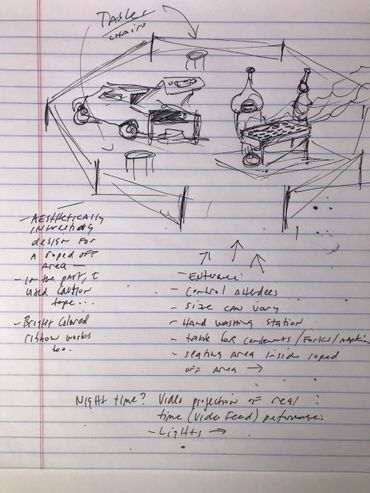 TABLES
CHAIRS
- AESTHETICALLY
INTERESTING
design FOR
A Roped OFF
AREA -
- IN the past, I
used CAUTION
tape...
- Bright Colored
ribbon works
too..
- Entrance
- Control Attendees
- Size CAN VARY
- Hand washing STATION
- table for condiments / Forks / napkins
- seating AREA inside roped
OFF AREA →
Night time? Video projection of real
time (video Feed) performance.
- Lights →